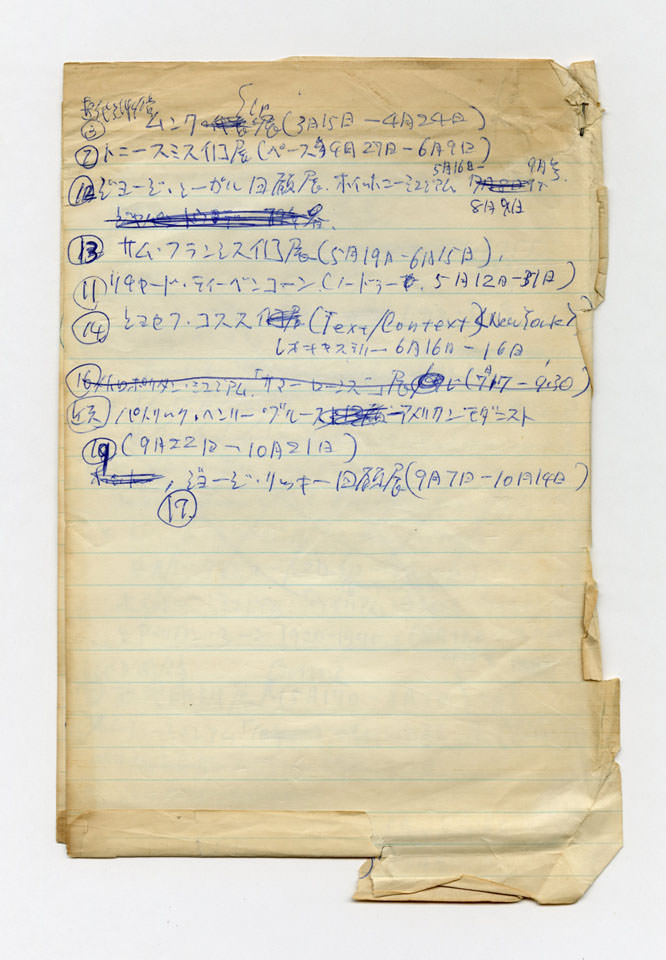 ③ ムンク 展(3月15日ー4月24日)
⑦ トニースミス個展(ペース 4月27日ー6月9日)
5月16日- 9月号
⑫ ジョージ・シーガル回顧展. ホイットニーミュジアム
8月9日
⑬ サム・フランシス個展(5月19日-6月15日),
⑪ リチャード・ディーベンコーン(ノードラー 5月12日-31日)
⑭ ジョセフ・コスス個展(Text/Context)(New York)
レオキャステリー 6月16日ー16日
⑯ メトロポリタン・ミュージアム「サマーローンズ」展 (7月17-9.30)
パトリック・ヘンリー・ブルース アメリカンモダニスト
⑲ (9月22日ー10月21日)
, ジョージ・リッキー回顧展(9月7日ー10月14日)
⑰